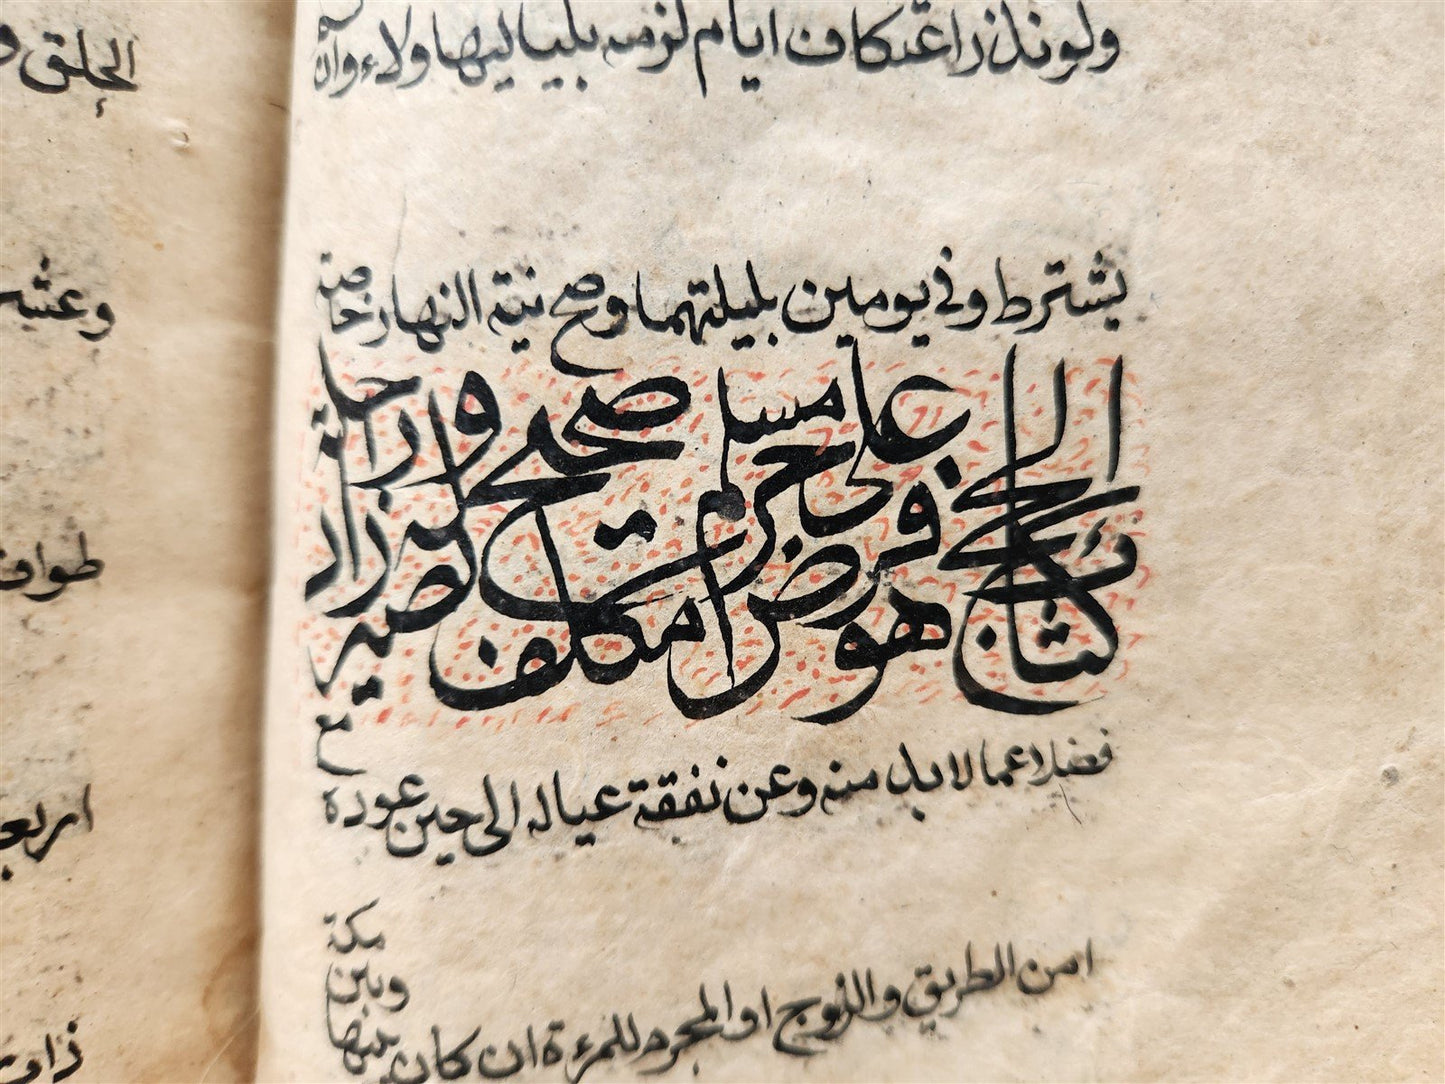 ولو نذر اعتكاف ايام لزمه بلياليها ولاء وان
يشترط وفي يومين بليلتهما وصح نية النهار خاصة
كتاب الحج
هو فرض على حر مسلم مكلف صحيح بصير له زاد وراحلة
فضلا عما لا بد منه وعن نفقة عياله الى حين عوده مع
امن الطريق والزوج او المحرم للمرءة ان كان بينها وبين مكة
الحلق
طواف